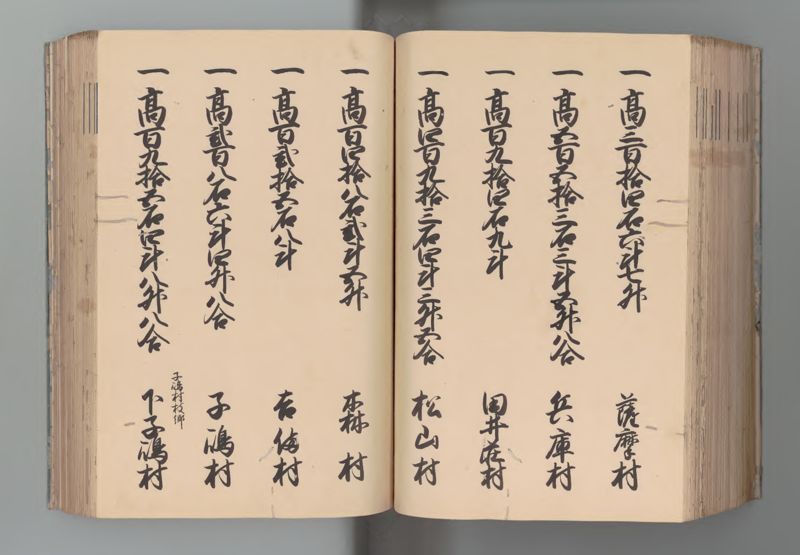 一 高三百拾四石六斗七升 薩摩村
一 高五百五拾三石三斗五升八合 兵庫村
一 高百九拾四石九斗 田井庄村
一 高四百九拾三石四斗三升五合 松山村
一 高百四拾八石弐斗五升 森村
一 高百弐拾五石八斗 吉備村
一 高弐百八石六斗四升八合 子嶋村
子嶋村枝郷
一 高百九拾五石四斗八升八合 下子嶋村